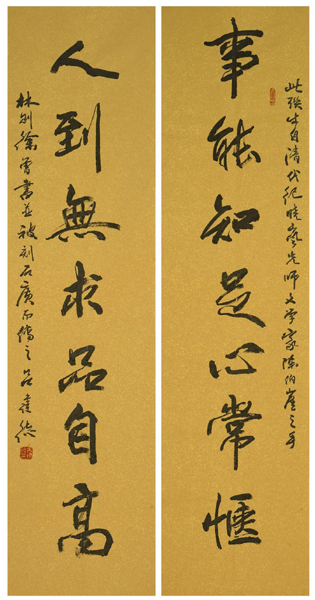 此联出自清代纪晓岚先师文学家陈伯崖之手
事能知足心常愜
人到無求品自高
林则徐曾書並被刻石廣而傳之